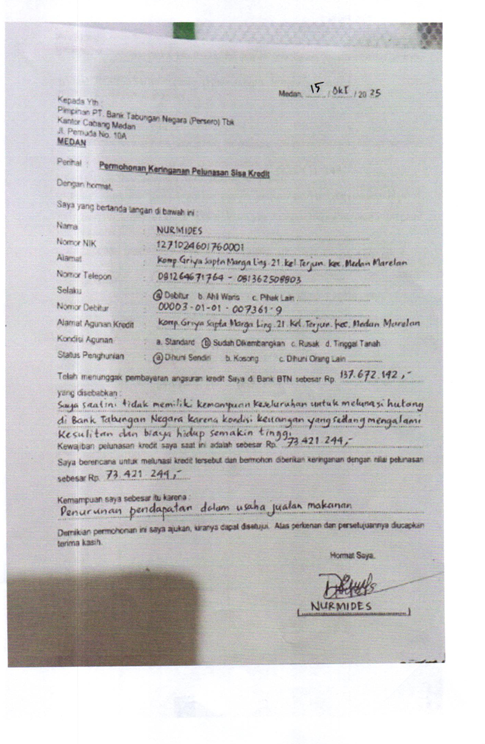 Medan, 15 / Okt / 2025
Kepada Yth :
Pimpinan PT. Bank Tabungan Negara (Persero) Tbk
Kantor Cabang Medan
Jl. Pemuda No. 10A
MEDAN
Perihal : Permohonan Keringanan Pelunasan Sisa Kredit
Dengan hormat,
Saya yang bertanda tangan di bawah ini :
Nama : NURMIDES
Nomor NIK : 1271024601760001
Alamat : Komp. Griya Sapta Marga Ling. 21. Kel Terjun. Kec. Medan Marelan
Nomor Telepon : 081264671764 - 081362508803
Selaku : a Debitur b. Ahli Waris c. Pihak Lain
Nomor Debitur : 00003-01-01-007361-9
Alamat Agunan Kredit : Komp. Griya Sapta Marga Ling. 21. Kel. Terjun. Kec. Medan Marelan
Kondisi Agunan : a. Standard b Sudah Dikembangkan c. Rusak d. Tinggal Tanah
Status Penghunian : a Dihuni Sendiri b. Kosong c. Dihuni Orang Lain
Telah menunggak pembayaran angsuran kredit Saya di Bank BTN sebesar Rp. 137.672.192,-
yang disebabkan :
Saya saat ini tidak memiliki kemampuan keseluruhan untuk melunasi hutang
di Bank Tabungan Negara karena kondisi keuangan yang sedang mengalami
kesulitan dan biaya hidup semakin tinggi
Kewajiban pelunasan kredit saya saat ini adalah sebesar Rp. 73.421.244,-
Saya berencana untuk melunasi kredit tersebut dan bermohon diberikan keringanan dengan nilai pelunasan
sebesar Rp. 73.421.244,-
Kemampuan saya sebesar itu karena :
Penurunan pendapatan dalam usaha jualan makanan
Demikian permohonan ini saya ajukan, kiranya dapat disetujui. Atas perkenan dan persetujuannya diucapkan
terima kasih.
Hormat Saya,
NURMIDES